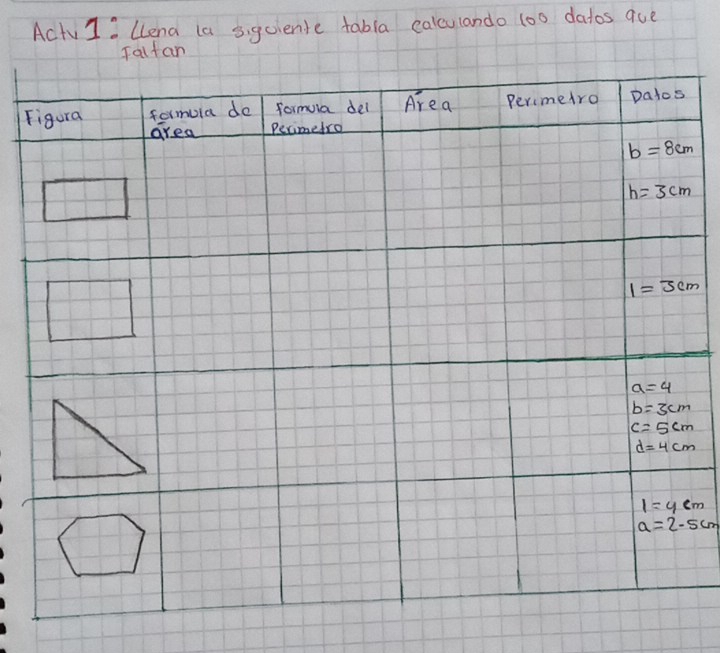 Actv 1: LLena la siguiente tabla calculando los datos que
faltan
Figura formula de formula del Área Perimetro Datos
área Perimetro
b = 8cm
h = 3cm
l = 3cm
a = 4
b = 3cm
c = 5cm
d = 4cm
l = 4cm
a = 2-5cm